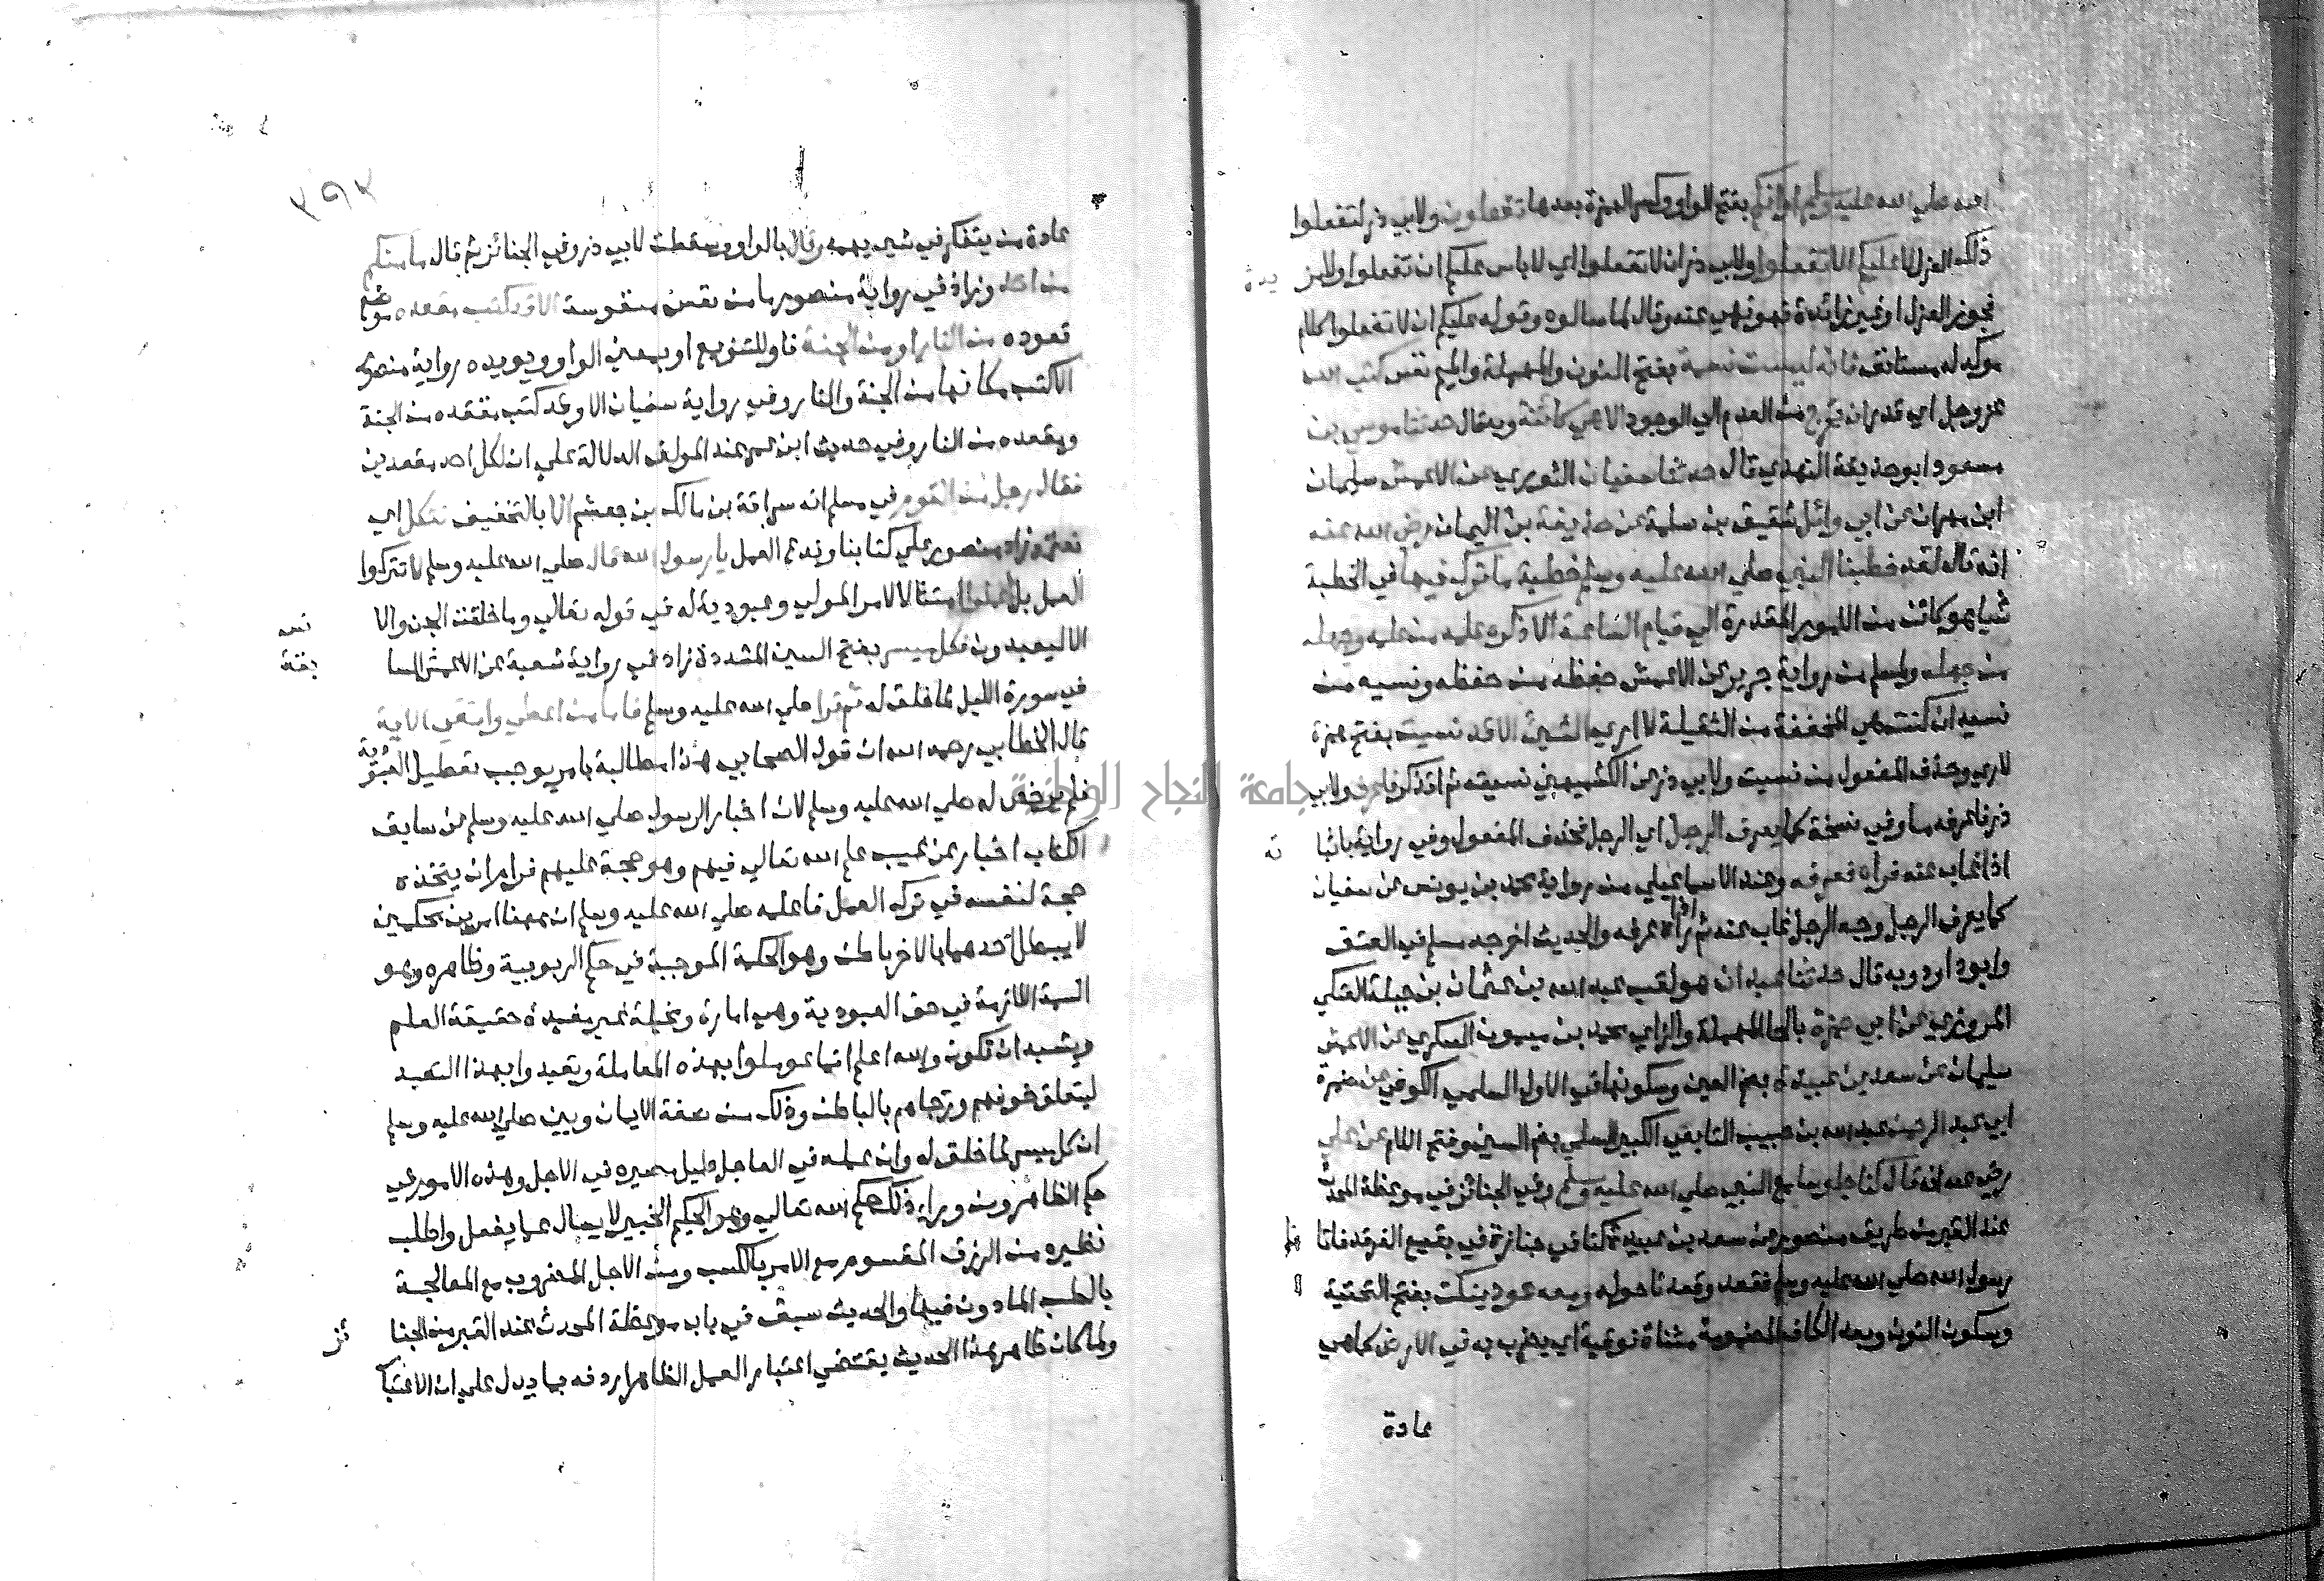 الله صلي الله عليه وسلم اوانكم بفتح الواو وكسر الهمزة بعدها تفعلون ولابي ذر لتفعلون
ذلك العزل لا عليكم الا تفعلوا ولابي ذر ان لا تفعلوا اي لا باس عليكم ان تفعلوا ولا مز
يدة
فجوز العزل او غير زائدة فهو نهي عنه وقال لما سالوه وقوله عليكم ان لا تفعلوا كلام
موكد له مستانف فانه ليست نسمة بفتح النون والمهملة والميم نفس كتب الله
عز وجل اي قدر ان تخرج من العدم الي الوجود الا هي كائنة وبه قال حدثنا موسي بن
مسعود ابو حذيفة النهدي قال حدثنا سفيان الثوري عن الاعمش سليمان
ابن مهران عن ابي وائل شقيق بن سلمة عن حذيفة بن اليمان رضي الله عنه
انه قال لقد خطبنا النبي صلي الله عليه وسلم خطبة ما ترك فيها في الخطبة
شيا هو كائن من الامور المقدرة الي قيام الساعة الا ذكره علمه من علمه وجهله
من جهله ولمسلم من رواية جرير عن الاعمش حفظه من حفظه ونسيه من
نسيه ان كنت هي المخففة من الثقيلة لا اري الشيئ الا قد نسيت بفتح همزة
لاري وحذف المفعول من نسيت ولابي ذر عن الكشميهني نسيته ثم اتذكر فاعرف ولابي
ذر فاعرفه ما وفي نسخة كما يعرف الرجل اي الرجل فحذف المفعول وفي رواية باثبا
ته
اذا غاب عنه فراه فعرفه وعند الاسماعيلي من رواية محمد بن يوسف عن سفيان
كما يعرف الرجل وجه الرجل غاب عنه ثم اذا راه عرفه والحديث اخرجه مسلم في الفتن
وابو داود وبه قال حدثنا عبدان هو لقب عبد الله بن عثمان بن جبلة العتكي
المروزي عن ابي حمزة بالحا المهملة والزاي محمد بن ميمون السكري عن الاعمش
سليمان عن سعد بن عبيدة بضم العين وسكونها في الاول السلمي الكوفي عن
ابي عبد الرحمن عبد الله بن حبيب التابعي الكبير السلمي بضم السين وفتح اللام عن علي
رضي عنه انه قال كنا جلوسا مع النبي صلي الله عليه وسلم وفي الجنائز في موعظة المحدث
عند القبر من طريق منصور عن سعد بن عبيدة كنا في جنازة في بقيع الغرقد فاتانا
رسول الله صلي الله عليه وسلم فقعد وقعدنا حوله ومعه عود ينكت بفتح التحتية
وسكون النون وبعد الكاف المضمومة مثناة فوقية اي يضرب به في الارض كما هي
عادة
٣٩٢
عادة من يتفكر في شيئ يهمه وقال بالواو وسقطت لابي ذر وفي الجنائز ثم قال ما منكم
من احد وزاد في رواية منصور ما من نفس منفوسة الا قد كتب مقعده موضع
قعوده من النار او من الجنة فاو للتنويع او بمعني الواو ويويده رواية منصور
الا كتب مكانها من الجنة والنار وفي رواية سفيان الا وقد كتب مقعده من الجنة
ومقعده من النار وفي حديث ابن عمر عند المولف الدلالة علي ان لكل احد مقعدين
فقال رجل من القوم في مسلم انه سراقة بن مالك بن جعشم الا بالتخفيف نتكل اي
نعتمد زاد منصور علي كتابنا وندع العمل يا رسول الله قال صلي الله عليه وسلم لا تتركوا
العمل بل اعملوا امتثالا لامر المولي وعبودية له في قوله تعالي وما خلقت الجن والا
نس
الا ليعبدون فكل ميسر بفتح السين المشددة زاد في رواية شعبة عن الاعمش السا
بقة
في سورة الليل لما خلق له ثم قرا صلي الله عليه وسلم فاما من اعطي واتقي الاية
قال الخطابي رحمه الله ان قول الصحابي هذا مطالبة بامر يوجب تعطيل العبودية
فلم يرخص له صلي الله عليه وسلم لان اخبار الرسول صلي الله عليه وسلم عن سابق
الكتاب اخبار عن غيب علم الله تعالي فيهم وهو حجة عليهم فرام ان يتخذه
حجة لنفسه في ترك العمل فاعلمه صلي الله عليه وسلم ان ههنا امرين محكمين
لا يبطل احدهما بالاخر باطن وهو الحكمة الموجبة في حكم الربوبية وظاهر وهو
السمة اللازمة في حق العبودية وهي امارة ومخيلة غير مفيدة حقيقة العلم
ويشبه ان تكون والله اعلم انما عوملوا بهذه المعاملة وتعبدوا بهذا التعبد
ليتعلق خوفهم ورجاهم بالباطن وذلك من صفة الايمان وبين صلي الله عليه وسلم
ان كل ميسر لما خلق له وان عمله في العاجل دليل مصيره في الاجل وهذه الامور في
حكم الظاهر ومن وراء ذلك حكم الله تعالي وهو الحكيم الخبير لا يسال عما يفعل واطلب
نظيره من الرزق المقسوم مع الامر بالكسب ومن الاجل المضروب مع المعالجة
بالطب الماذون فيها والحديث سبق في باب موعظة المحدث عند القبر من الجنا
ئز
ولما كان ظاهر هذا الحديث يقتضي اعتبار العمل الظاهر اردفه بما يدل علي ان الاعتبار
جامعة النجاح الوطنية